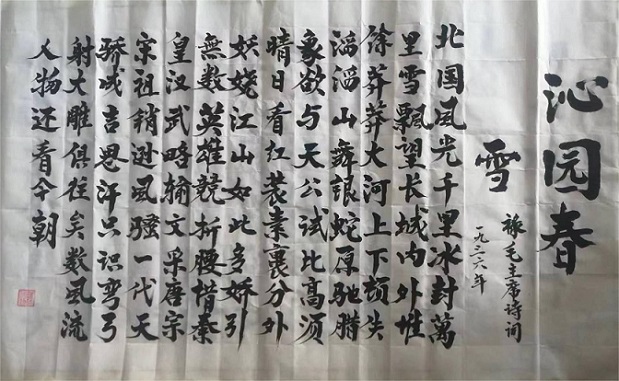 沁园春
雪
录毛主席诗词
一九三六年
北国风光千里冰封萬
里雪飘望长城内外惟
馀莽莽大河上下顿失
滔滔山舞银蛇原驰腊
象欲与天公试比高须
晴日看红装素裹分外
妖娆江山如此多娇引
無数英雄競折腰惜秦
皇汉武略输文采唐宗
宋祖稍逊风骚一代天
骄成吉思汗只识弯弓
射大雕俱往矣数风流
人物还看今朝